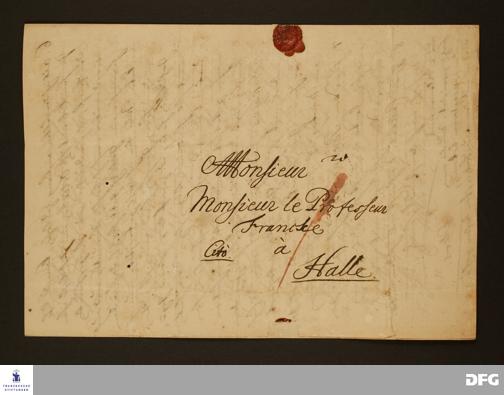 Monsieur
Monsieur le Professeur
Francke
Cito. à
Halle.
FRANCKESCHE
STIFTUNGEN
DFG